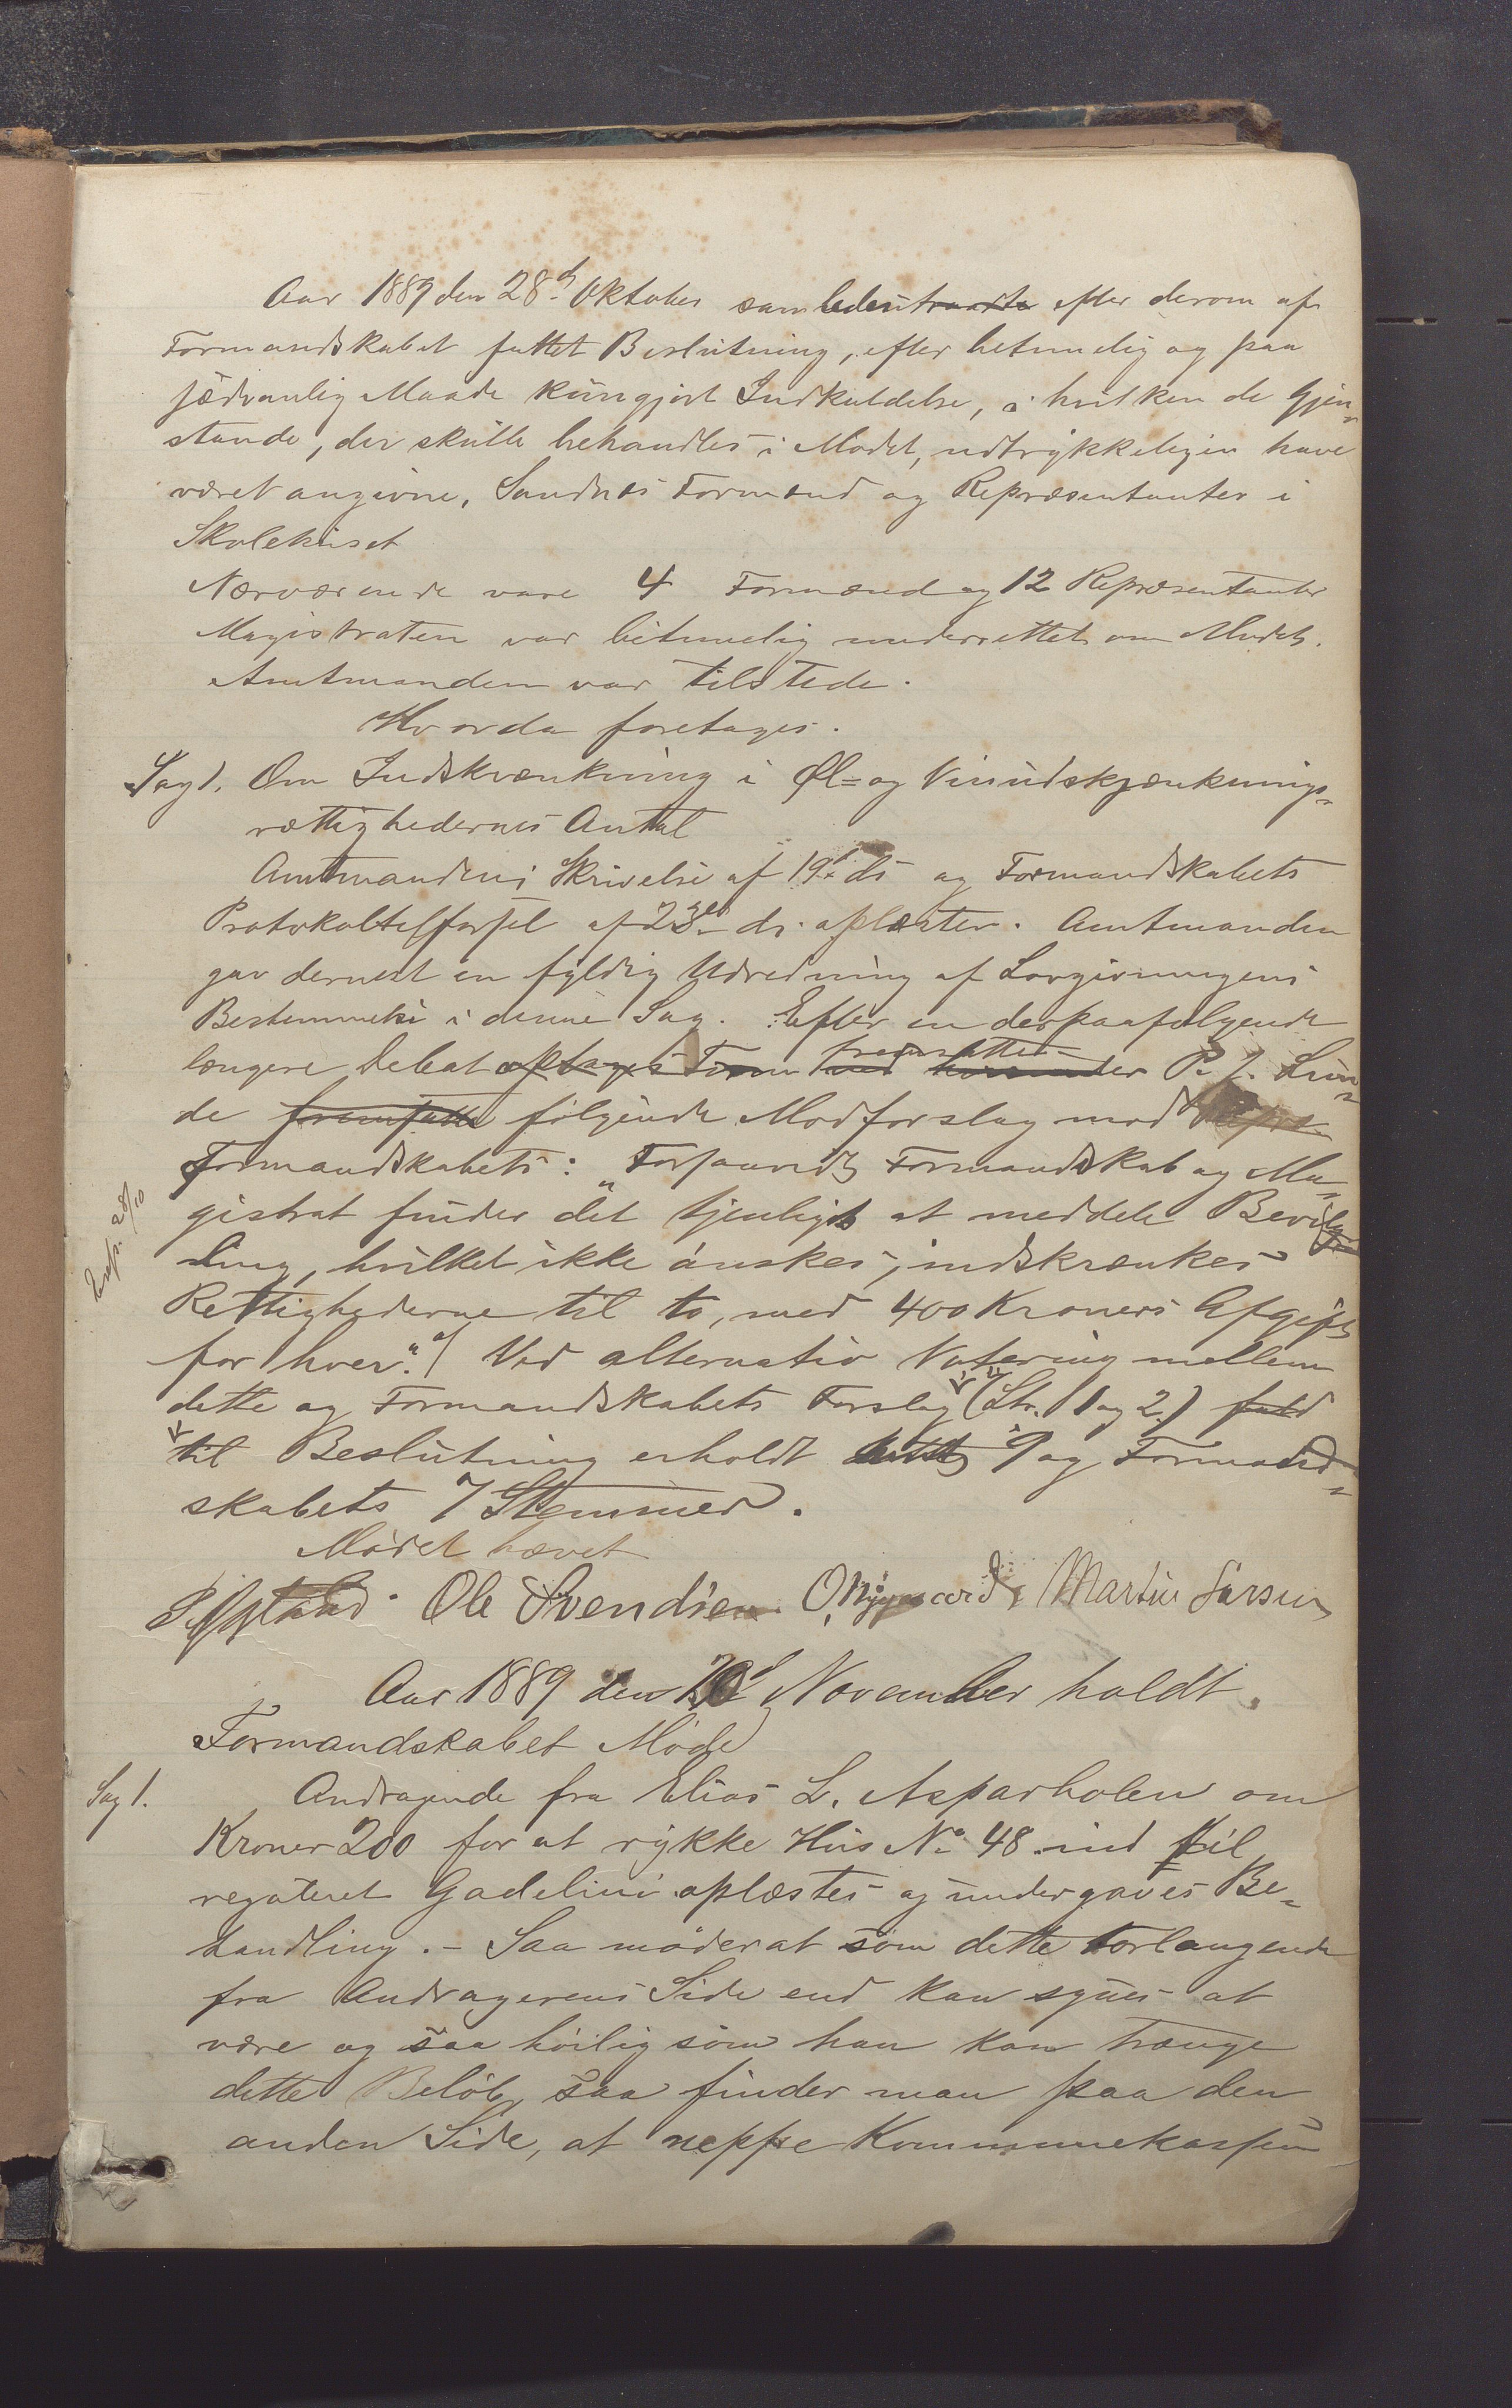 Aar 1889 den 28d Oktober samledes efter derom af
Formandskabet fattet Beslutning, efter betimelig og paa
sædvanlig Maade kungjort Indkaldelse, i hvilken de Gjen-
stande, der skulle behandles i Mødet, udtrykkeligen have
været angivne, Sandnes Formænd og Repræsentanter i
Skolehuset
Nærværende vare 4 Formænd og 12 Repræsentanter
Magistraten var betimelig underrettet om Mødet.
Amtmanden var tilstede.
Hvorda foretages.
Sag 1. Om Indskrænkning i Øl= og Vinudskjænknings-
rettighedernes Antal
Amtmandens Skrivelse af 19d ds og Formandskabets
Protokoltilførsel af 23de ds. oplæstes. Amtmanden
gav dernæst en fyldig Udredning af Lovgivningens
Bestemmelse i denne Sag. Efter en derpaafølgende
længere Debat fremsatte P. J. Lun-
de følgende Modforslag mod
Formandskabets: "Forsaavidt Formandskab og Ma-
gistrat finder det tjenligt at meddele Bevil-
ling, hvilket ikke ønskes, indskrænkes
Exp. 28/10
Rettighederne til to, med 400 Kroners Afgift
for hver." Ved alternativ Votering mellem
dette og Formandskabets Forslag (Ltr. 1 og 2.)
til Beslutning erholdt dette 9 og Formand-
skabets 7 Stemmer.
Mødet hævet
Ole Svendsen. Martin Larsen
Aar 1889 den November holdt
Formandskabet Møde
Sag 1. Andragende fra Elias L. Asparholen om
Kroner 200 for at rykke Hus No 48 ind til
reguleret Gadelinie oplæstes og undergaves Be-
handling. - Saa moderat som dette Forlangende
fra Andragerens Side end kan synes at
være og saa høilig som han kan trænge
dette Beløb, saa finder man paa den
anden Side, at neppe Kommunekassen